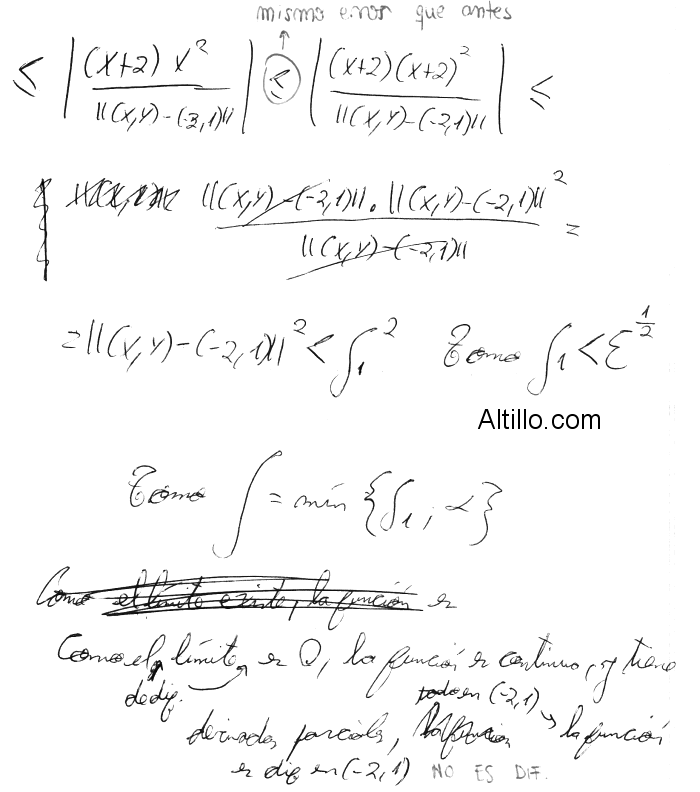 mismo error que antes
≤ | (x+2) x² / ||(x,y)-(-2,1)|| | ≤ | (x+2)(x+2)² / ||(x,y)-(-2,1)|| | ≤
||(x,y)-(-2,1)|| . ||(x,y)-(-2,1)||² / ||(x,y)-(-2,1)|| =
= ||(x,y)-(-2,1)||² < δ₁² Tomo δ₁ < ε^(1/2)
Altillo.com
Tomo δ = mín {δ₁; α}
Como el límite existe, la función es
Como el límite es 0, la función es continua, y tiene
de dif.
todo en (-2,1)
derivadas parciales, la función
es dif en (-2,1) NO ES DIF.